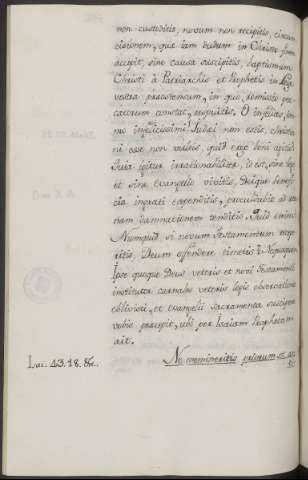 non custoditis, novum non recipitis, circum
cisionem, quæ jam dudum in Christo finem
accepit, sine causa suscipitis, baptismum
Christi à Patriarchis et Prophetis in lege
vestra præostensum, in quo remissio pec
catorum constat, respuitis. O infelices, im
mo infelicissimi! Judæi non estis, christia
ni esse non vultis, quid ergo dicit apostolus
Quia igitur irrationabiliter, id est, sine lege
et sine evangelio vivitis, Deique benefi
cia ingrati expenditis, procul dubio ad æter
nam damnationem tenditis. Quid enim?
Numquid si novum Testamentum recipe
ritis, Deum offendere timetis? Nequaquam
Ipse quoque Deus veteris et novi Testamenti
institutor carnales veteris legis observationes
oblivisci, et evangelii sacramenta suscipere
vobis præcepit, ubi per Isaiam Prophetam
ait.
Isai. 43. 18. &c. Ne memineritis priorum, et an